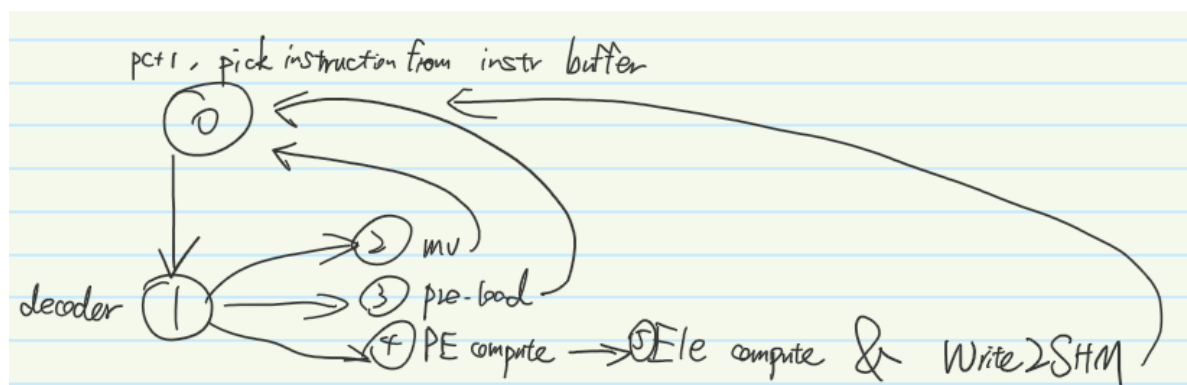 pc+1, pick instruction from instr buffer
0
2 mv
decoder 1 3 pre-load
4 PE compute 5 Ele compute & Write2SHM